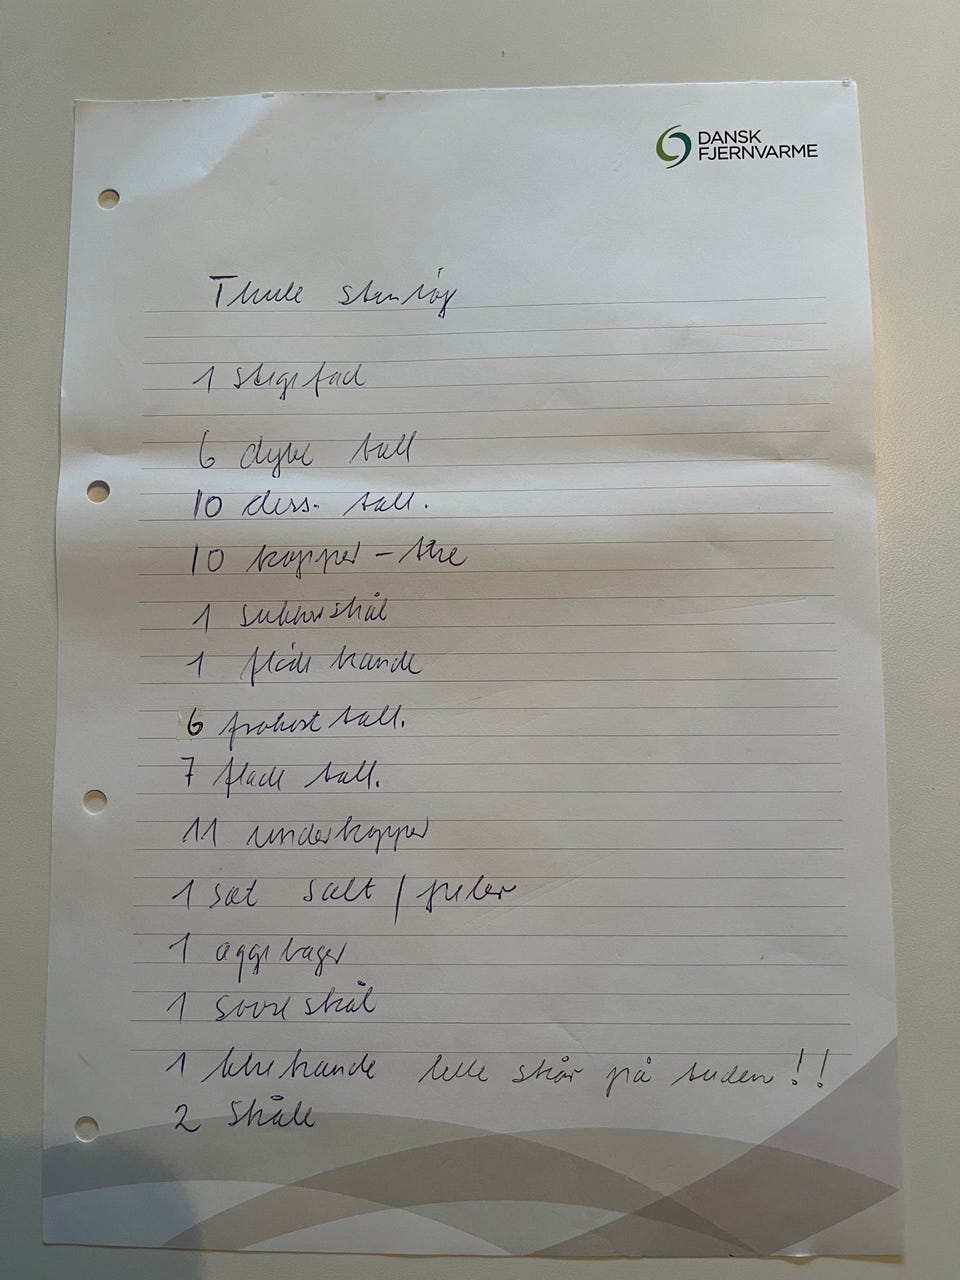 DANSK
FJERNVARME
Thule stentøj
1 stegefad
6 dybe tall
10 dess. tall.
10 kopper - the
1 sukkerskål
1 fløde kande
6 frokost tall.
7 flade tall.
11 underkopper
1 sæt salt / peber
1 æggebæger
1 sovse skål
1 thekande lille skår på tuden !!
2 skåle